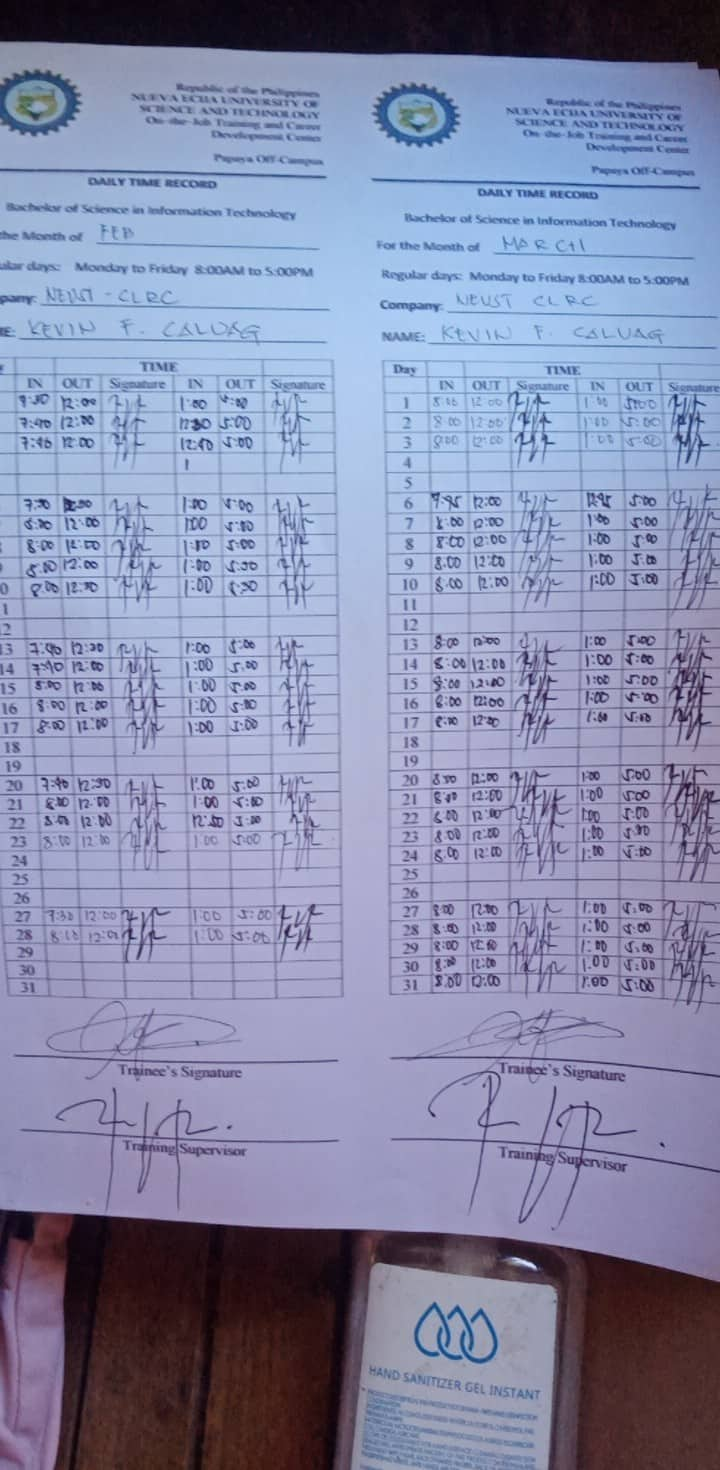 Republic of the Philippines
NUEVA ECIJA UNIVERSITY OF
SCIENCE AND TECHNOLOGY
On-the-Job Training and Career
Development Center
Papaya Off-Campus
DAILY TIME RECORD
Bachelor of Science in Information Technology
the Month of FEB
ular days: Monday to Friday 8:00AM to 5:00PM
pany: NEUST - CLRC
E: KEVIN F. CALUAG
TIME
IN OUT Signature IN OUT Signature
7:30 12:00 1:00
7:40 12:00 5:00
7:46 12:00 12:40 5:00
7:30 1:00
12:00 1:00 5:00
8:00 12:00 5:00
8:00 12:00 1:00
0 8:00 1:00
1
2
13 7:40 1:00 5:00
14 7:40 12:00 1:00 5:00
15 8:00 12:00 1:00 5:00
16 8:00 12:00 1:00 5:00
17 8:00 12:00 1:00 5:00
18
19
20 7:40 12:30 1:00 5:00
21 8:00 12:00 1:00 5:00
22 8:00 12:00
23 8:00 12:00 1:00 5:00
24
25
26
27 7:30 12:00 1:00 5:00
28 12:00 1:00 5:00
29
30
31
Trainee's Signature
Training Supervisor
Republic of the Philippines
NUEVA ECIJA UNIVERSITY OF
SCIENCE AND TECHNOLOGY
On-the-Job Training and Career
Development Center
Papaya Off-Campus
DAILY TIME RECORD
Bachelor of Science in Information Technology
For the Month of MARCH
Regular days: Monday to Friday 8:00AM to 5:00PM
Company: NEUST CLRC
NAME: KEVIN F. CALUAG
Day TIME
IN OUT Signature IN OUT Signature
1 8:00 12:00 1:00 5:00
2 8:00 12:00 1:00 5:00
3 8:00 12:00 1:00 5:00
4
5
6 7:45 12:00 5:00
7 8:00 12:00 1:00 5:00
8 8:00 12:00 1:00 5:00
9 8:00 12:00 1:00 5:00
10 8:00 12:00 1:00 5:00
11
12
13 8:00 12:00 1:00 5:00
14 8:00 12:00 1:00 5:00
15 8:00 12:00 1:00 5:00
16 8:00 12:00 1:00 5:00
17 8:00 1:00 5:00
18
19
20 12:00 1:00 5:00
21 8:00 12:00 1:00 5:00
22 8:00 12:00 1:00 5:00
23 8:00 12:00 1:00
24 8:00 12:00 1:00 5:00
25
26
27 8:00 12:00 1:00 5:00
28 8:00 12:00 1:00 5:00
29 8:00 1:00 5:00
30 8:00 12:00 1:00 5:00
31 8:00 12:00 1:00 5:00
Trainee's Signature
Training Supervisor
HAND SANITIZER GEL INSTANT